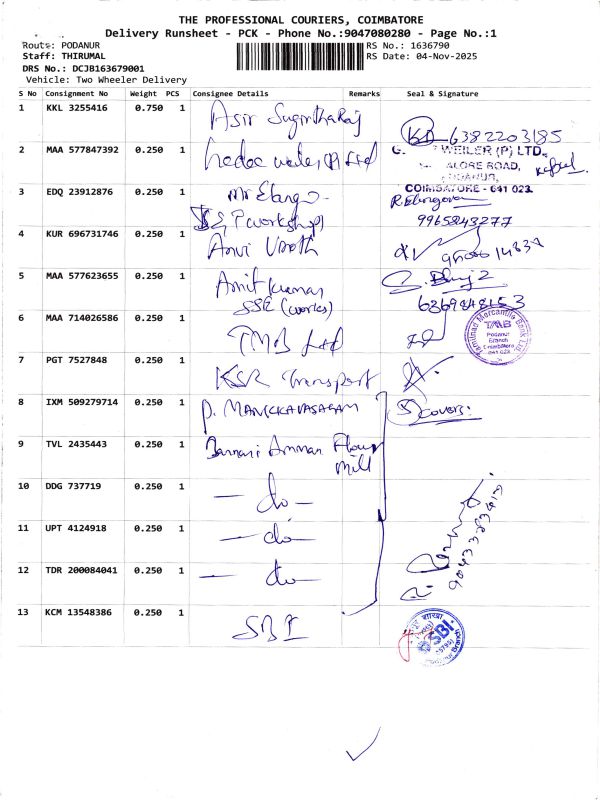 THE PROFESSIONAL COURIERS, COIMBATORE
Delivery Runsheet - PCK - Phone No.:9047080280 - Page No.:1
Route: PODANUR
RS No.: 1636790
Staff: THIRUMAL
RS Date: 04-Nov-2025
DRS No.: DCJB163679001
Vehicle: Two Wheeler Delivery
S No Consignment No Weight PCS Consignee Details Remarks Seal & Signature
1 KKL 3255416 0.750 1 Asir Sugirtharaj
6382203185
2 MAA 577847392 0.250 1
WEILER (P) LTD.,
ALORE ROAD,
COIMBATORE - 641 023.
3 EDQ 23912876 0.250 1 Mr Elango
R. Elangovan
SSE (workshop)
9965843277
4 KUR 696731746 0.250 1
5 MAA 577623655 0.250 1 Amit kumar
SSE (works)
6369848153
6 MAA 714026586 0.250 1 TMB Ltd
Tamilnad Mercantile Bank Ltd
TMB
Podanur
Branch
Coimbatore
641 023
7 PGT 7527848 0.250 1 KSR Transport
8 IXM 509279714 0.250 1 P. MANICKAVASAGAM
5 covers.
9 TVL 2435443 0.250 1 Bannari Amman Flour
Mill
10 DDG 737719 0.250 1 - do -
11 UPT 4124918 0.250 1 - do -
12 TDR 200084041 0.250 1 - do -
13 KCM 13548386 0.250 1 SBI
SBI